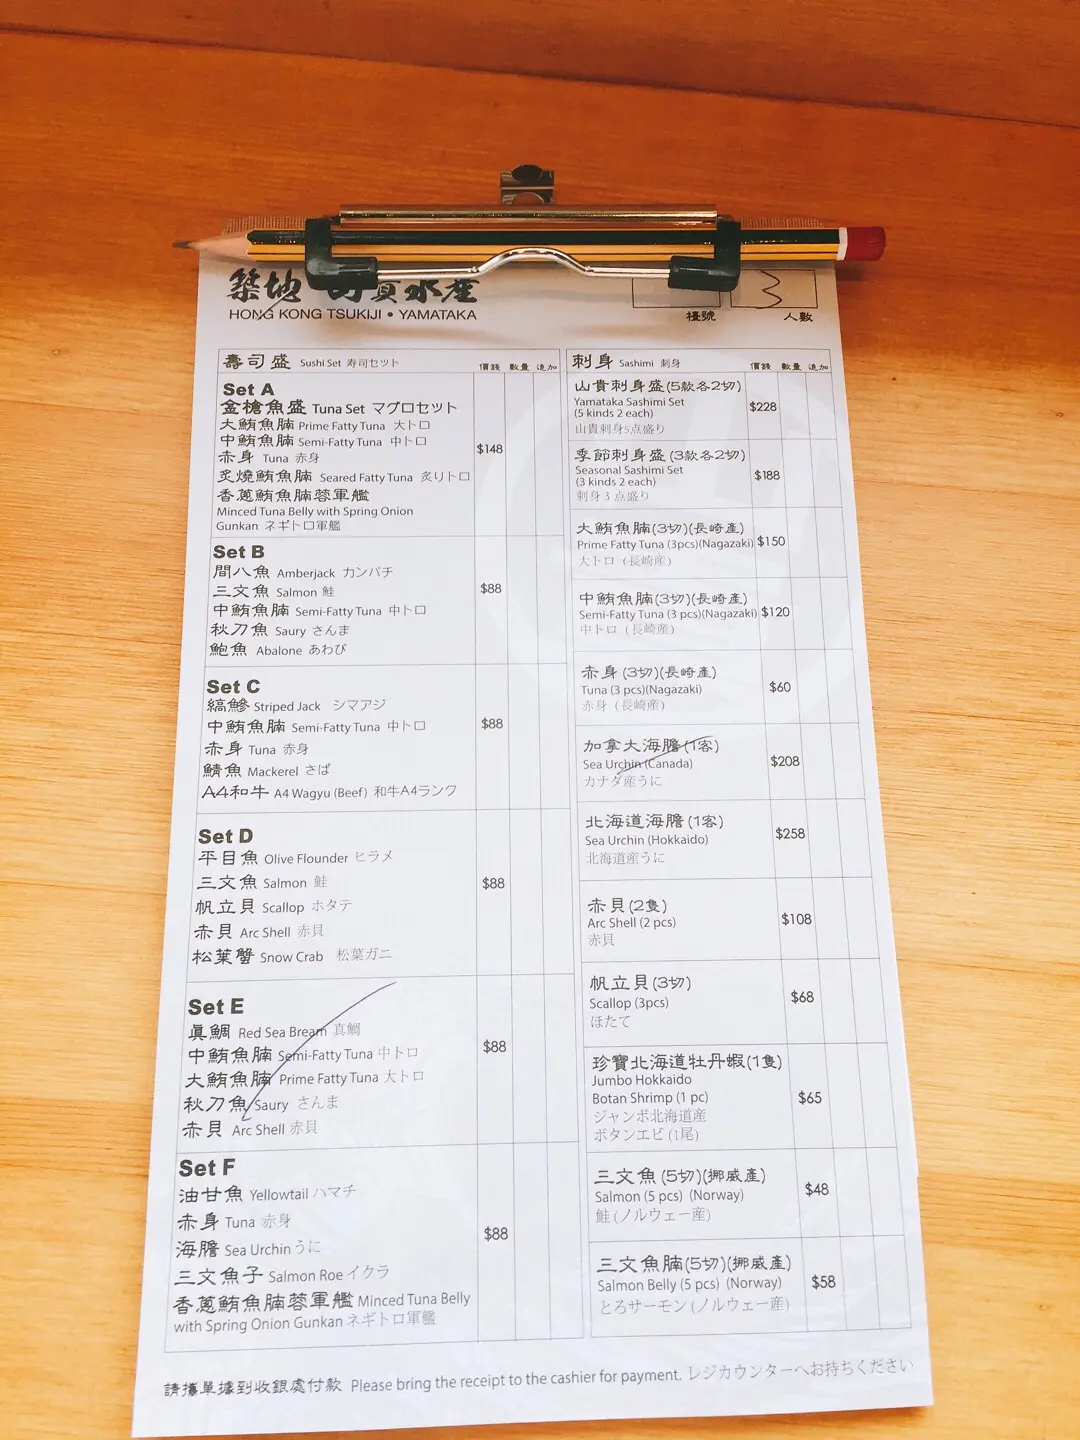 築地 貴水産
HONG KONG TSUKIJI • YAMATAKA
3
檯號 人數
壽司盛 Sushi Set 寿司セット 價錢 數量 追加
Set A
金槍魚盛 Tuna Set マグロセット
大鮪魚腩 Prime Fatty Tuna 大トロ
中鮪魚腩 Semi-Fatty Tuna 中トロ
赤身 Tuna 赤身
炙燒鮪魚腩 Seared Fatty Tuna 炙りトロ
香蔥鮪魚腩蓉軍艦
Minced Tuna Belly with Spring Onion
Gunkan ネギトロ軍艦
$148
Set B
間八魚 Amberjack カンパチ
三文魚 Salmon 鮭
中鮪魚腩 Semi-Fatty Tuna 中トロ
秋刀魚 Saury さんま
鮑魚 Abalone あわび
$88
Set C
縞鰺 Striped Jack シマアジ
中鮪魚腩 Semi-Fatty Tuna 中トロ
赤身 Tuna 赤身
鯖魚 Mackerel さば
A4和牛 A4 Wagyu (Beef) 和牛A4ランク
$88
Set D
平目魚 Olive Flounder ヒラメ
三文魚 Salmon 鮭
帆立貝 Scallop ホタテ
赤貝 Arc Shell 赤貝
松葉蟹 Snow Crab 松葉ガニ
$88
Set E
真鯛 Red Sea Bream 真鯛
中鮪魚腩 Semi-Fatty Tuna 中トロ
大鮪魚腩 Prime Fatty Tuna 大トロ
秋刀魚 Saury さんま
赤貝 Arc Shell 赤貝
$88
Set F
油甘魚 Yellowtail ハマチ
赤身 Tuna 赤身
海膽 Sea Urchin うに
三文魚子 Salmon Roe イクラ
香蔥鮪魚腩蓉軍艦 Minced Tuna Belly
with Spring Onion Gunkan ネギトロ軍艦
$88
刺身 Sashimi 刺身 價錢 數量 追加
山貴刺身盛(5款各2切)
Yamataka Sashimi Set
(5 kinds 2 each)
山貴刺身5点盛り
$228
季節刺身盛(3款各2切)
Seasonal Sashimi Set
(3 kinds 2 each)
刺身3点盛り
$188
大鮪魚腩(3切)(長崎產)
Prime Fatty Tuna (3pcs)(Nagazaki)
大トロ (長崎産)
$150
中鮪魚腩(3切)(長崎產)
Semi-Fatty Tuna (3 pcs)(Nagazaki)
中トロ (長崎産)
$120
赤身(3切)(長崎產)
Tuna (3 pcs)(Nagazaki)
赤身 (長崎産)
$60
加拿大海膽(1客)
Sea Urchin (Canada)
カナダ産うに
$208
北海道海膽(1客)
Sea Urchin (Hokkaido)
北海道産うに
$258
赤貝(2隻)
Arc Shell (2 pcs)
赤貝
$108
帆立貝(3切)
Scallop (3pcs)
ほたて
$68
珍寶北海道牡丹蝦(1隻)
Jumbo Hokkaido
Botan Shrimp (1 pc)
ジャンボ北海道産
ボタンエビ (1尾)
$65
三文魚(5切)(挪威產)
Salmon (5 pcs) (Norway)
鮭 (ノルウェー産)
$48
三文魚腩(5切)(挪威產)
Salmon Belly (5 pcs) (Norway)
とろサーモン (ノルウェー産)
$58
請攜單據到收銀處付款 Please bring the receipt to the cashier for payment. レジカウンターへお持ちください